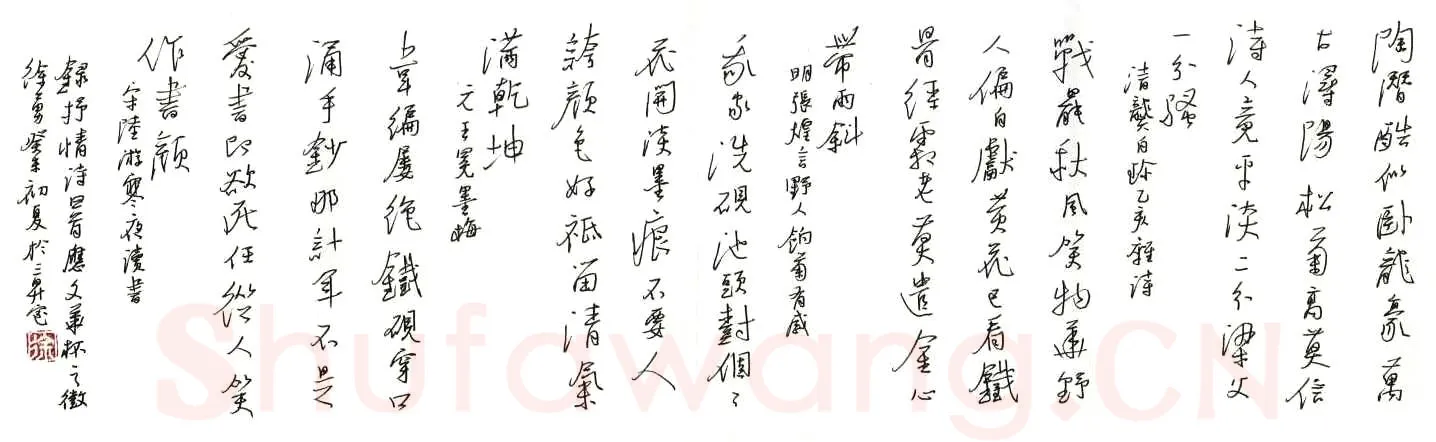 陶潛酷似臥龍豪萬
古潯陽松菊高莫信
詩人竟平淡二分梁父
一分騷
清龔自珍己亥雜詩
戰罷秋風笑物華野
人偏自獻黃花已看鐵
骨經霜老莫遣金心
帶雨斜
明張煌言野人餉菊有感
我家洗硯池頭樹個〻
花開淡墨痕不要人
誇顏色好祗留清氣
滿乾坤
元王冕墨梅
韋編屢絕鐵硯穿口
誦手鈔那計年不是
愛書即欲死任從人笑
作書顛
宋陸游寒夜讀書
錄抒情詩四首應文華杯之徵
徐勇癸未初夏於三昇室
Shufawang.CN